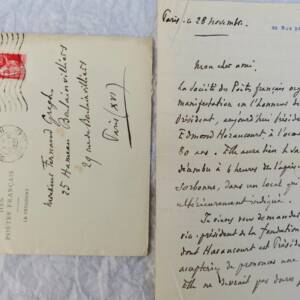 Monsieur Fernand Gregh
25 Hameau Boulainvilliers
29 rue de Boulainvilliers
Paris (XVI)
POÈTES FRANÇAIS
LE PRÉSIDENT
Paris, le 28 novembre
Mon cher ami,
La Société des Poètes français org
manifestation en l'honneur de
Président, aujourd'hui président
Edmond Haraucourt à l'occa
80 ans. Elle aura lieu le
décembre à 6 heures de l'après
Sorbonne, dans un local qui
ultérieurement indiqué.
Je viens vous demander
président de la Fondation
dont Haraucourt est Présid
accepteriez de prononcer une
Elle ne devrait pas durer